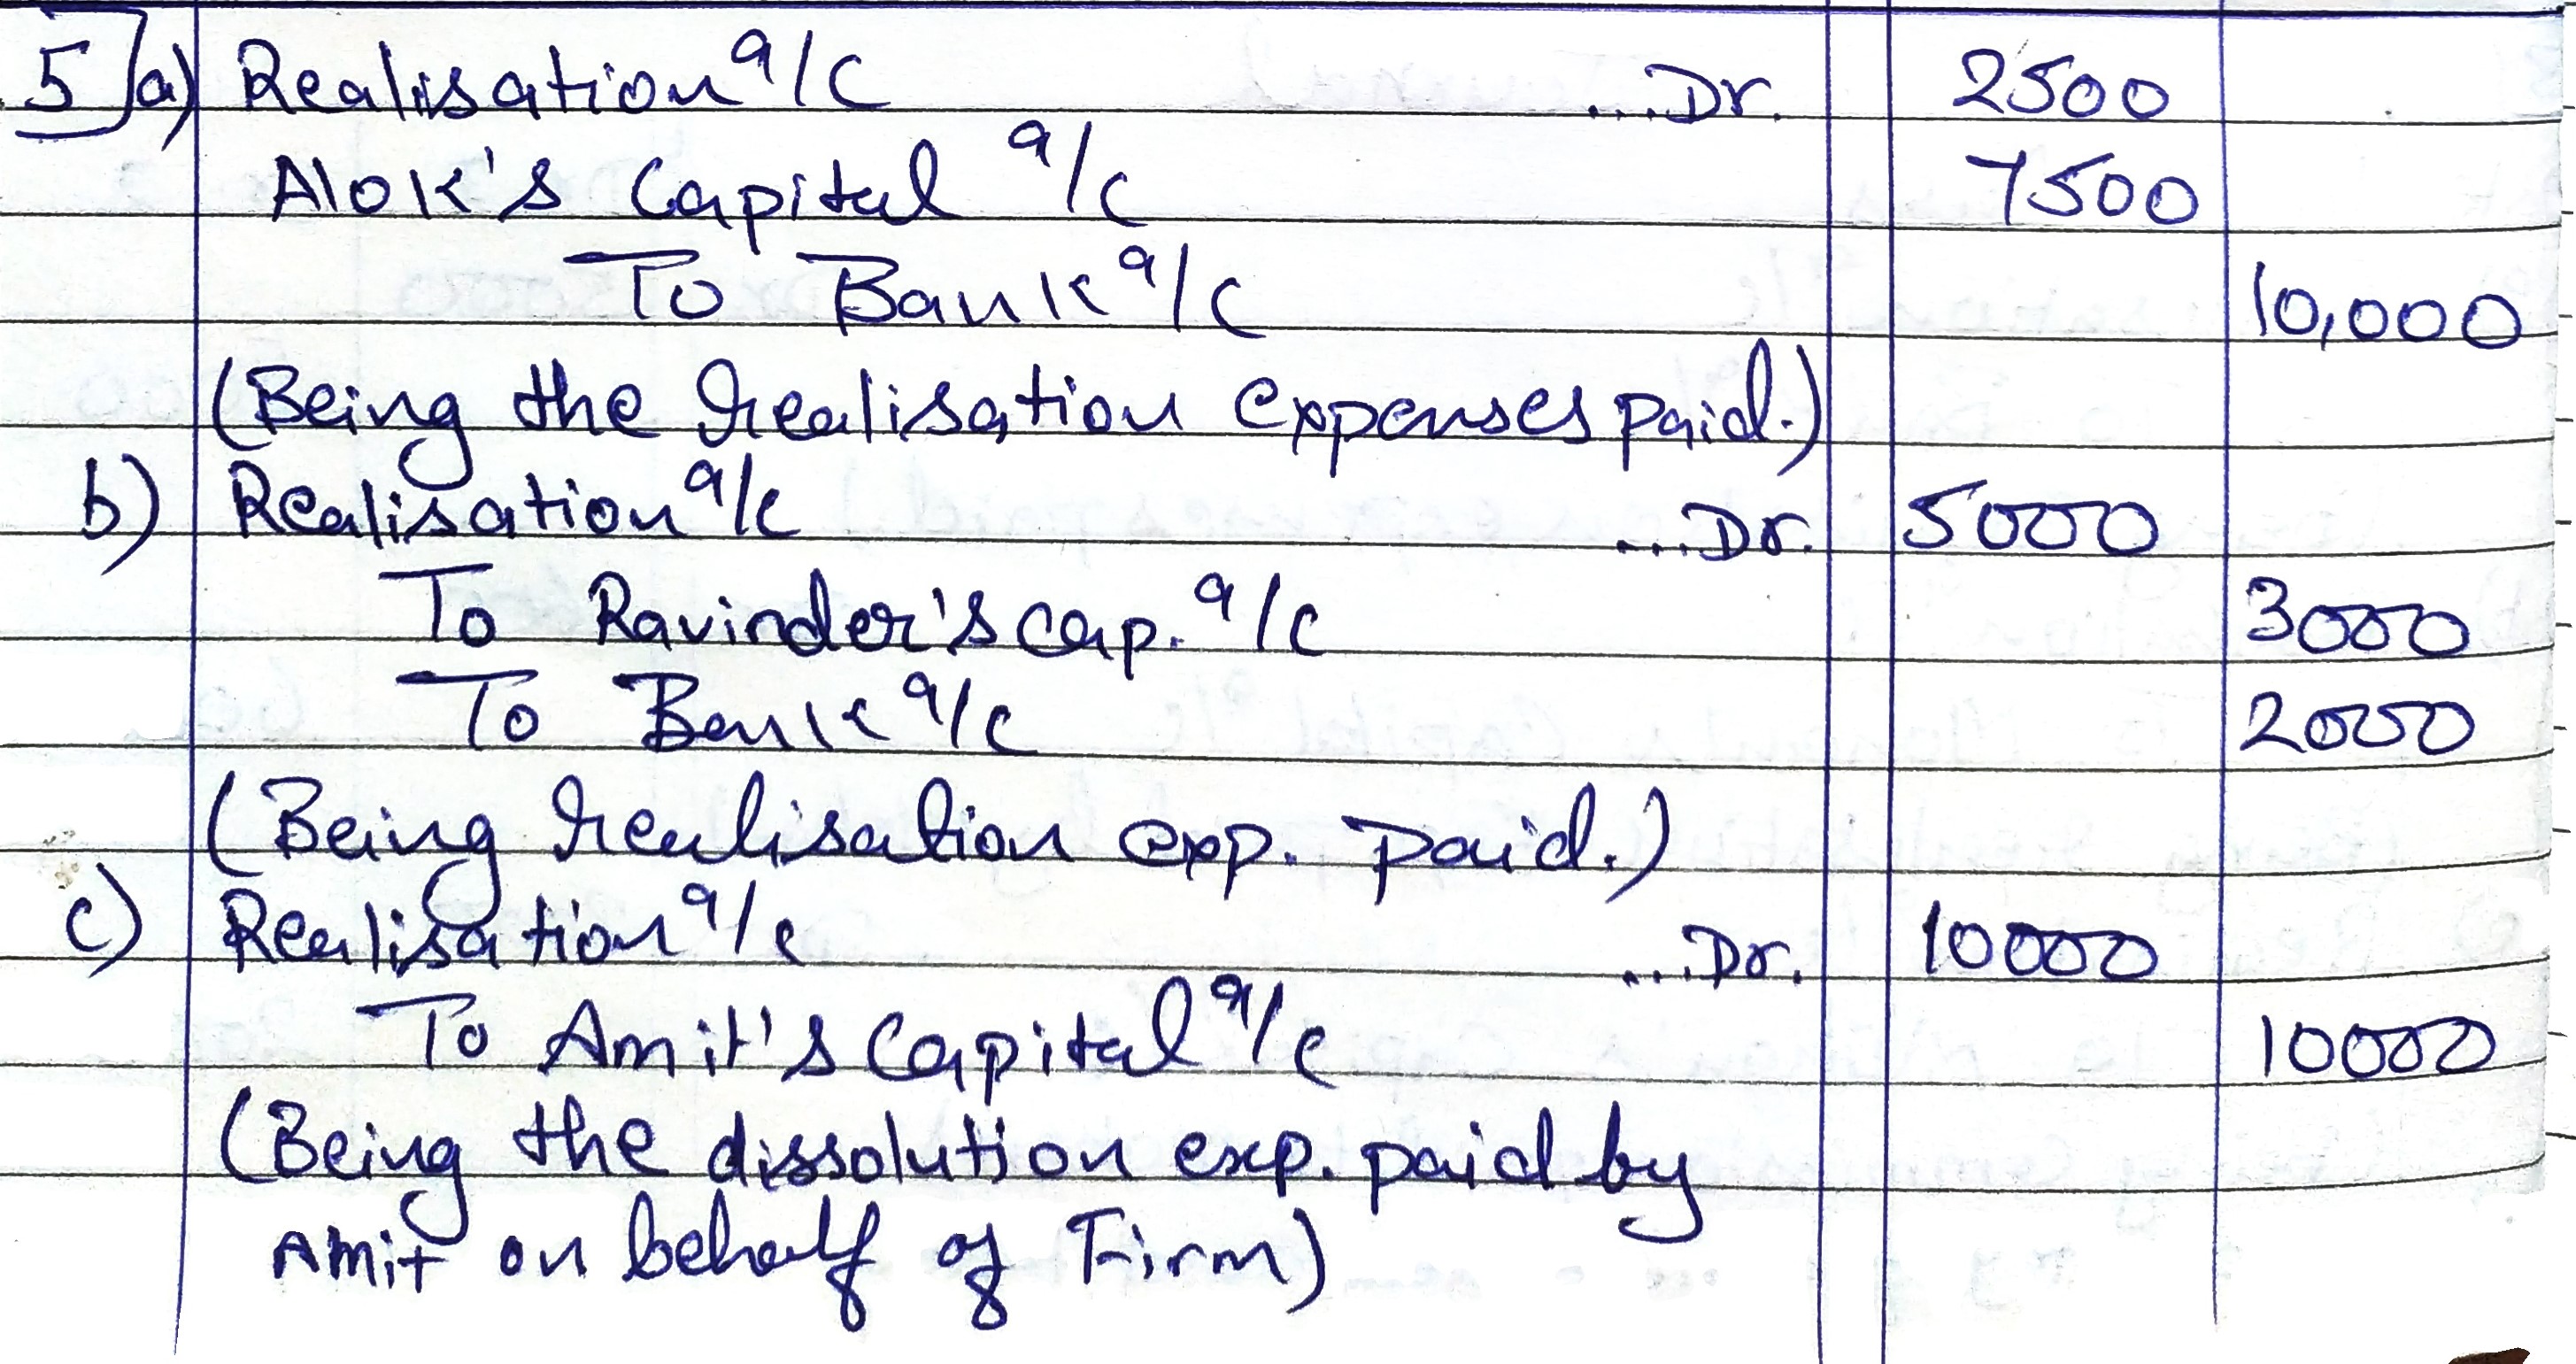 5]a) Realisation a/c ...Dr. 2500
Alok's Capital a/c 7500
To Bank a/c 10,000
(Being the realisation expenses paid.)
b) Realisation a/c ...Dr. 5000
To Ravinder's cap. a/c 3000
To Bank a/c 2000
(Being realisation exp. paid.)
c) Realisation a/c ...Dr. 10000
To Amit's Capital a/c 10000
(Being the dissolution exp. paid by
Amit on behalf of Firm)